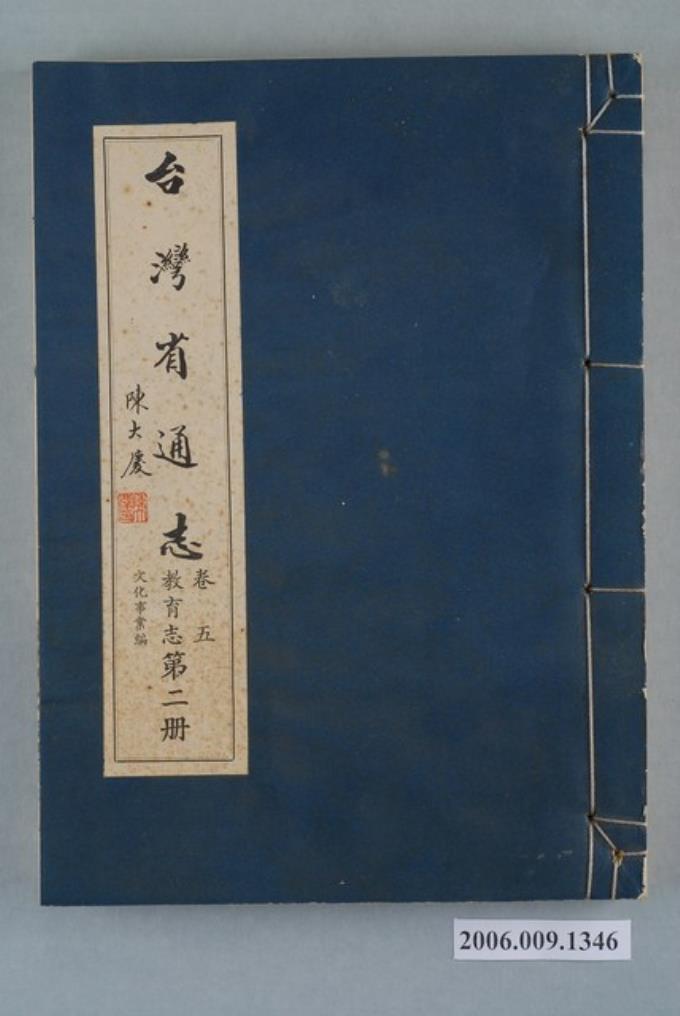 台灣省通志
卷五
教育志第二册
文化事業編
陳大慶
2006.009.1346